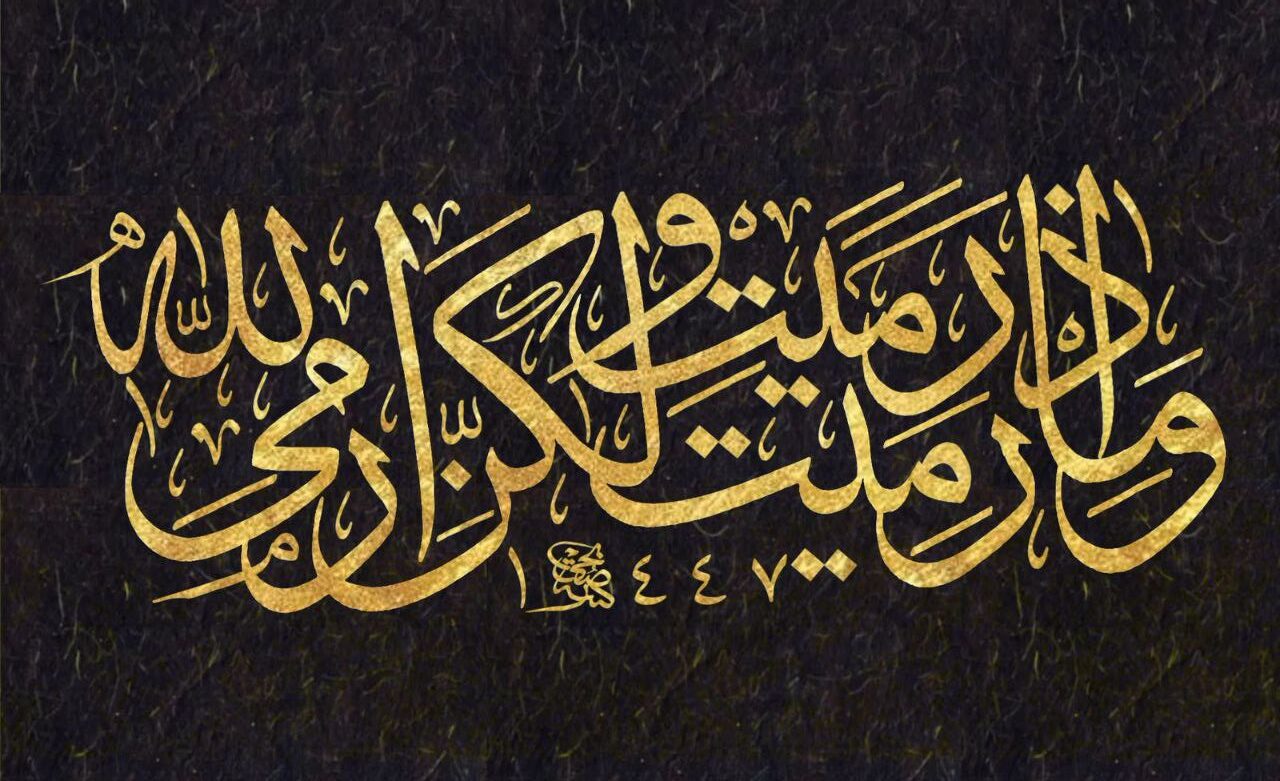 وَمَا رَمَيْتَ إِذْ رَمَيْتَ وَلَٰكِنَّ اللَّهَ رَمَىٰ
١٤٤٧